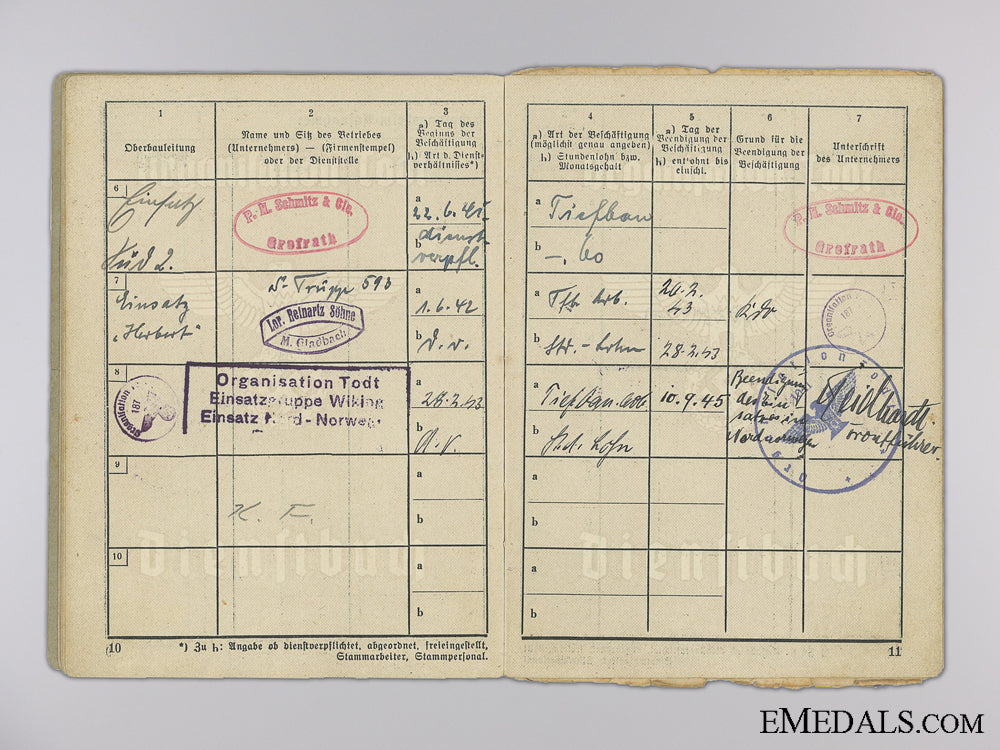 1
Oberbauleitung
2
Name und Sitz des Betriebes
(Unternehmers) — (Firmenstempel)
oder der Dienststelle
3
a) Tag des
Beginns der
Beschäftigung
b) Art d. Dienst-
verhältnisses*)
6
Einsatz
Süd 2.
P. M. Schmitz & Cie.
Grefrath
a
22. 6. 41.
b
dienst-
verpfl.
7
Einsatz
„Herbert“
Lor. Reinartz Söhne
M. Gladbach
a
1. 6. 42
b
D. v.
8
Organisation
187
Organisation Todt
Einsatzgruppe Wiking
Einsatz Nord - Norwegen
a
28.2.43
b
D. V.
9
K. F.
a
b
10
a
b
*) Zu b: Angabe ob dienstverpflichtet, abgeordnet, freieingestellt,
Stammarbeiter, Stammpersonal.
10
Dienstbuch
4
a) Art der Beschäftigung
(möglichst genau angeben)
b) Stundenlohn bzw.
Monatsgehalt
5
a) Tag der
Beendigung der
Beschäftigung
b) entlohnt bis
einschl.
6
Grund für die
Beendigung der
Beschäftigung
7
Unterschrift
des Unternehmers
a
Tiefbau
b
-, 60
P. M. Schmitz & Cie.
Grefrath
a
Tfb. Arb.
20.2.
43
b
Std. - Lohn
28.2.43
Organisation
187
a
10. 9. 45
Beendigung
b
Std. Lohn
Frontführer.
a
b
a
b
Dienstbuch
11
EMEDALS.COM